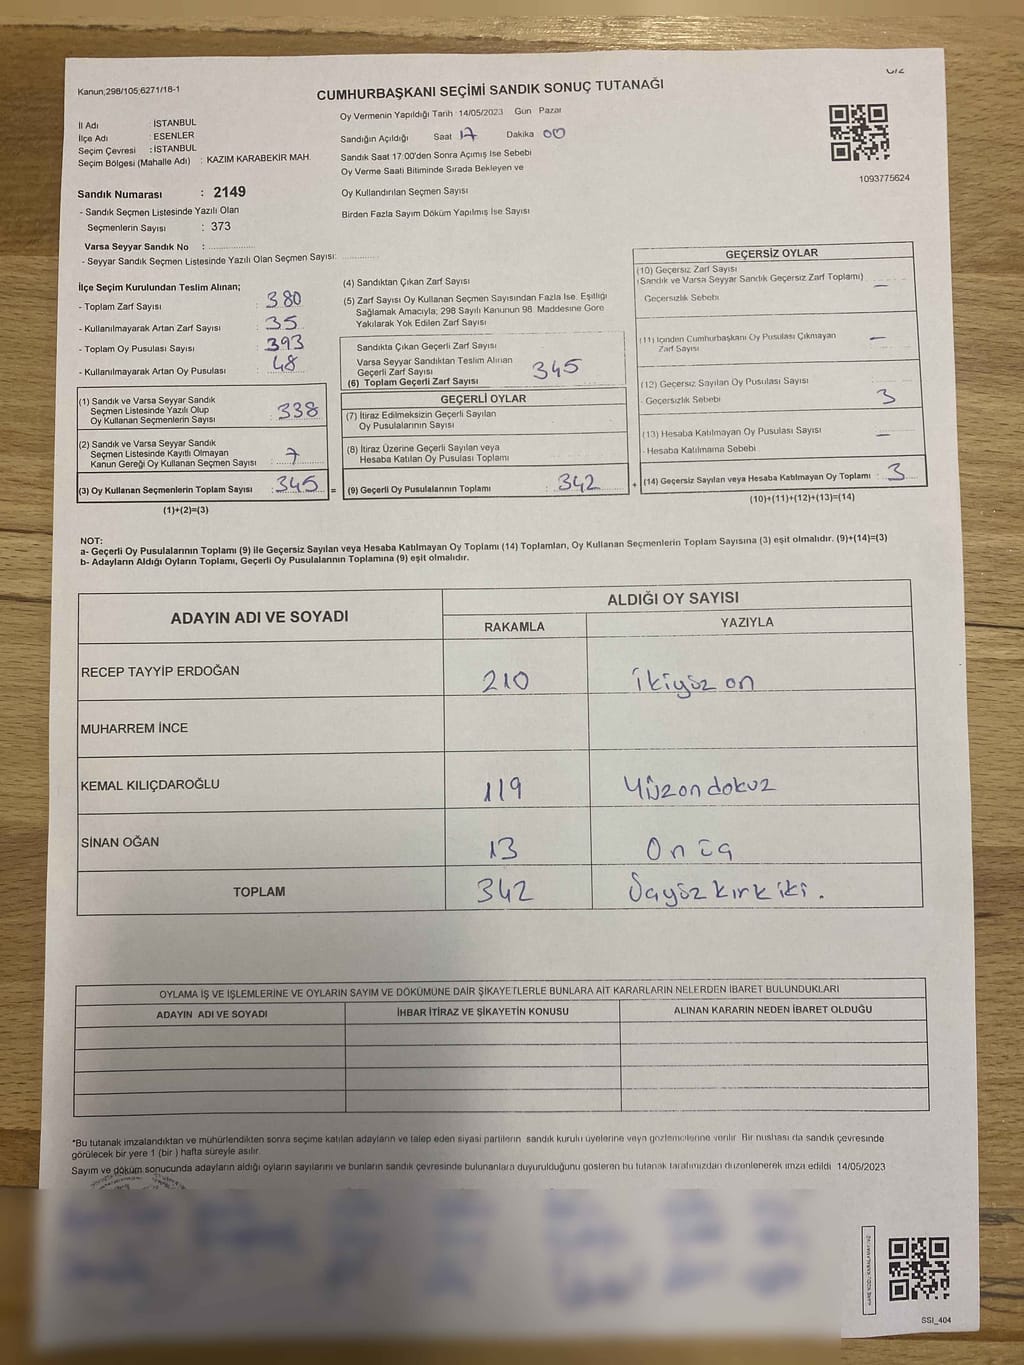 Kanun;298/105;6271/18-1
CUMHURBAŞKANI SEÇİMİ SANDIK SONUÇ TUTANAĞI
İl Adı : İSTANBUL
İlçe Adı : ESENLER
Seçim Çevresi : İSTANBUL
Seçim Bölgesi (Mahalle Adı) : KAZIM KARABEKİR MAH.
Oy Vermenin Yapıldığı Tarih 14/05/2023 Gün Pazar
Sandığın Açıldığı Saat 17 Dakika 00
Sandık Saat 17:00'den Sonra Açımış İse Sebebi
Oy Verme Saati Bitiminde Sırada Bekleyen ve
Oy Kullandırılan Seçmen Sayısı
Birden Fazla Sayım Döküm Yapılmış İse Sayısı
1093775624
Sandık Numarası : 2149
- Sandık Seçmen Listesinde Yazılı Olan
Seçmenlerin Sayısı : 373
Varsa Seyyar Sandık No :
- Seyyar Sandık Seçmen Listesinde Yazılı Olan Seçmen Sayısı:
İlçe Seçim Kurulundan Teslim Alınan;
- Toplam Zarf Sayısı : 380
- Kullanılmayarak Artan Zarf Sayısı : 35
- Toplam Oy Pusulası Sayısı : 393
- Kullanılmayarak Artan Oy Pusulası : 48
(1) Sandık ve Varsa Seyyar Sandık
Seçmen Listesinde Yazılı Olup
Oy Kullanan Seçmenlerin Sayısı : 338
(2) Sandık ve Varsa Seyyar Sandık
Seçmen Listesinde Kayıtlı Olmayan
Kanun Gereği Oy Kullanan Seçmen Sayısı : 7
(3) Oy Kullanan Seçmenlerin Toplam Sayısı : 345 =
(1)+(2)=(3)
(4) Sandıktan Çıkan Zarf Sayısı
(5) Zarf Sayısı Oy Kullanan Seçmen Sayısından Fazla İse, Eşitliği
Sağlamak Amacıyla; 298 Sayılı Kanunun 98. Maddesine Göre
Yakılarak Yok Edilen Zarf Sayısı
Sandıkta Çıkan Geçerli Zarf Sayısı
Varsa Seyyar Sandıktan Teslim Alınan
Geçerli Zarf Sayısı
(6) Toplam Geçerli Zarf Sayısı 345
GEÇERLİ OYLAR
(7) İtiraz Edilmeksizin Geçerli Sayılan
Oy Pusulalarının Sayısı
(8) İtiraz Üzerine Geçerli Sayılan veya
Hesaba Katılan Oy Pusulası Toplamı
(9) Geçerli Oy Pusulalarının Toplamı : 342 +
GEÇERSİZ OYLAR
(10) Geçersiz Zarf Sayısı
(Sandık ve Varsa Seyyar Sandık Geçersiz Zarf Toplamı) –
Geçersizlik Sebebi
(11) İçinden Cumhurbaşkanı Oy Pusulası Çıkmayan –
Zarf Sayısı
(12) Geçersiz Sayılan Oy Pusulası Sayısı
- Geçersizlik Sebebi 3
(13) Hesaba Katılmayan Oy Pusulası Sayısı –
- Hesaba Katılmama Sebebi
(14) Geçersiz Sayılan veya Hesaba Katılmayan Oy Toplamı : 3
(10)+(11)+(12)+(13)=(14)
NOT:
a- Geçerli Oy Pusulalarının Toplamı (9) ile Geçersiz Sayılan veya Hesaba Katılmayan Oy Toplamı (14) Toplamları, Oy Kullanan Seçmenlerin Toplam Sayısına (3) eşit olmalıdır. (9)+(14)=(3)
b- Adayların Aldığı Oyların Toplamı, Geçerli Oy Pusulalarının Toplamına (9) eşit olmalıdır.
ADAYIN ADI VE SOYADI ALDIĞI OY SAYISI
RAKAMLA YAZIYLA
RECEP TAYYİP ERDOĞAN 210 ikiyüz on
MUHARREM İNCE
KEMAL KILIÇDAROĞLU 119 Yüzon dokuz
SİNAN OĞAN 13 On üç
TOPLAM 342 Üçyüz kırk iki.
OYLAMA İŞ VE İŞLEMLERİNE VE OYLARIN SAYIM VE DÖKÜMÜNE DAİR ŞİKAYETLERLE BUNLARA AİT KARARLARIN NELERDEN İBARET BULUNDUKLARI
ADAYIN ADI VE SOYADI İHBAR İTİRAZ VE ŞİKAYETİN KONUSU ALINAN KARARIN NEDEN İBARET OLDUĞU
*Bu tutanak imzalandıktan ve mühürlendikten sonra seçime katılan adayların ve talep eden siyasi partilerin sandık kurulu üyelerine veya gözlemcilerine verilir. Bir nüshası da sandık çevresinde
görülecek bir yere 1 (bir) hafta süreyle asılır.
Sayım ve döküm sonucunda adayların aldığı oyların sayılarını ve bunların sandık çevresinde bulunanlara duyurulduğunu gösteren bu tutanak tarafımızdan düzenlenerek imza edildi 14/05/2023
SSI_404